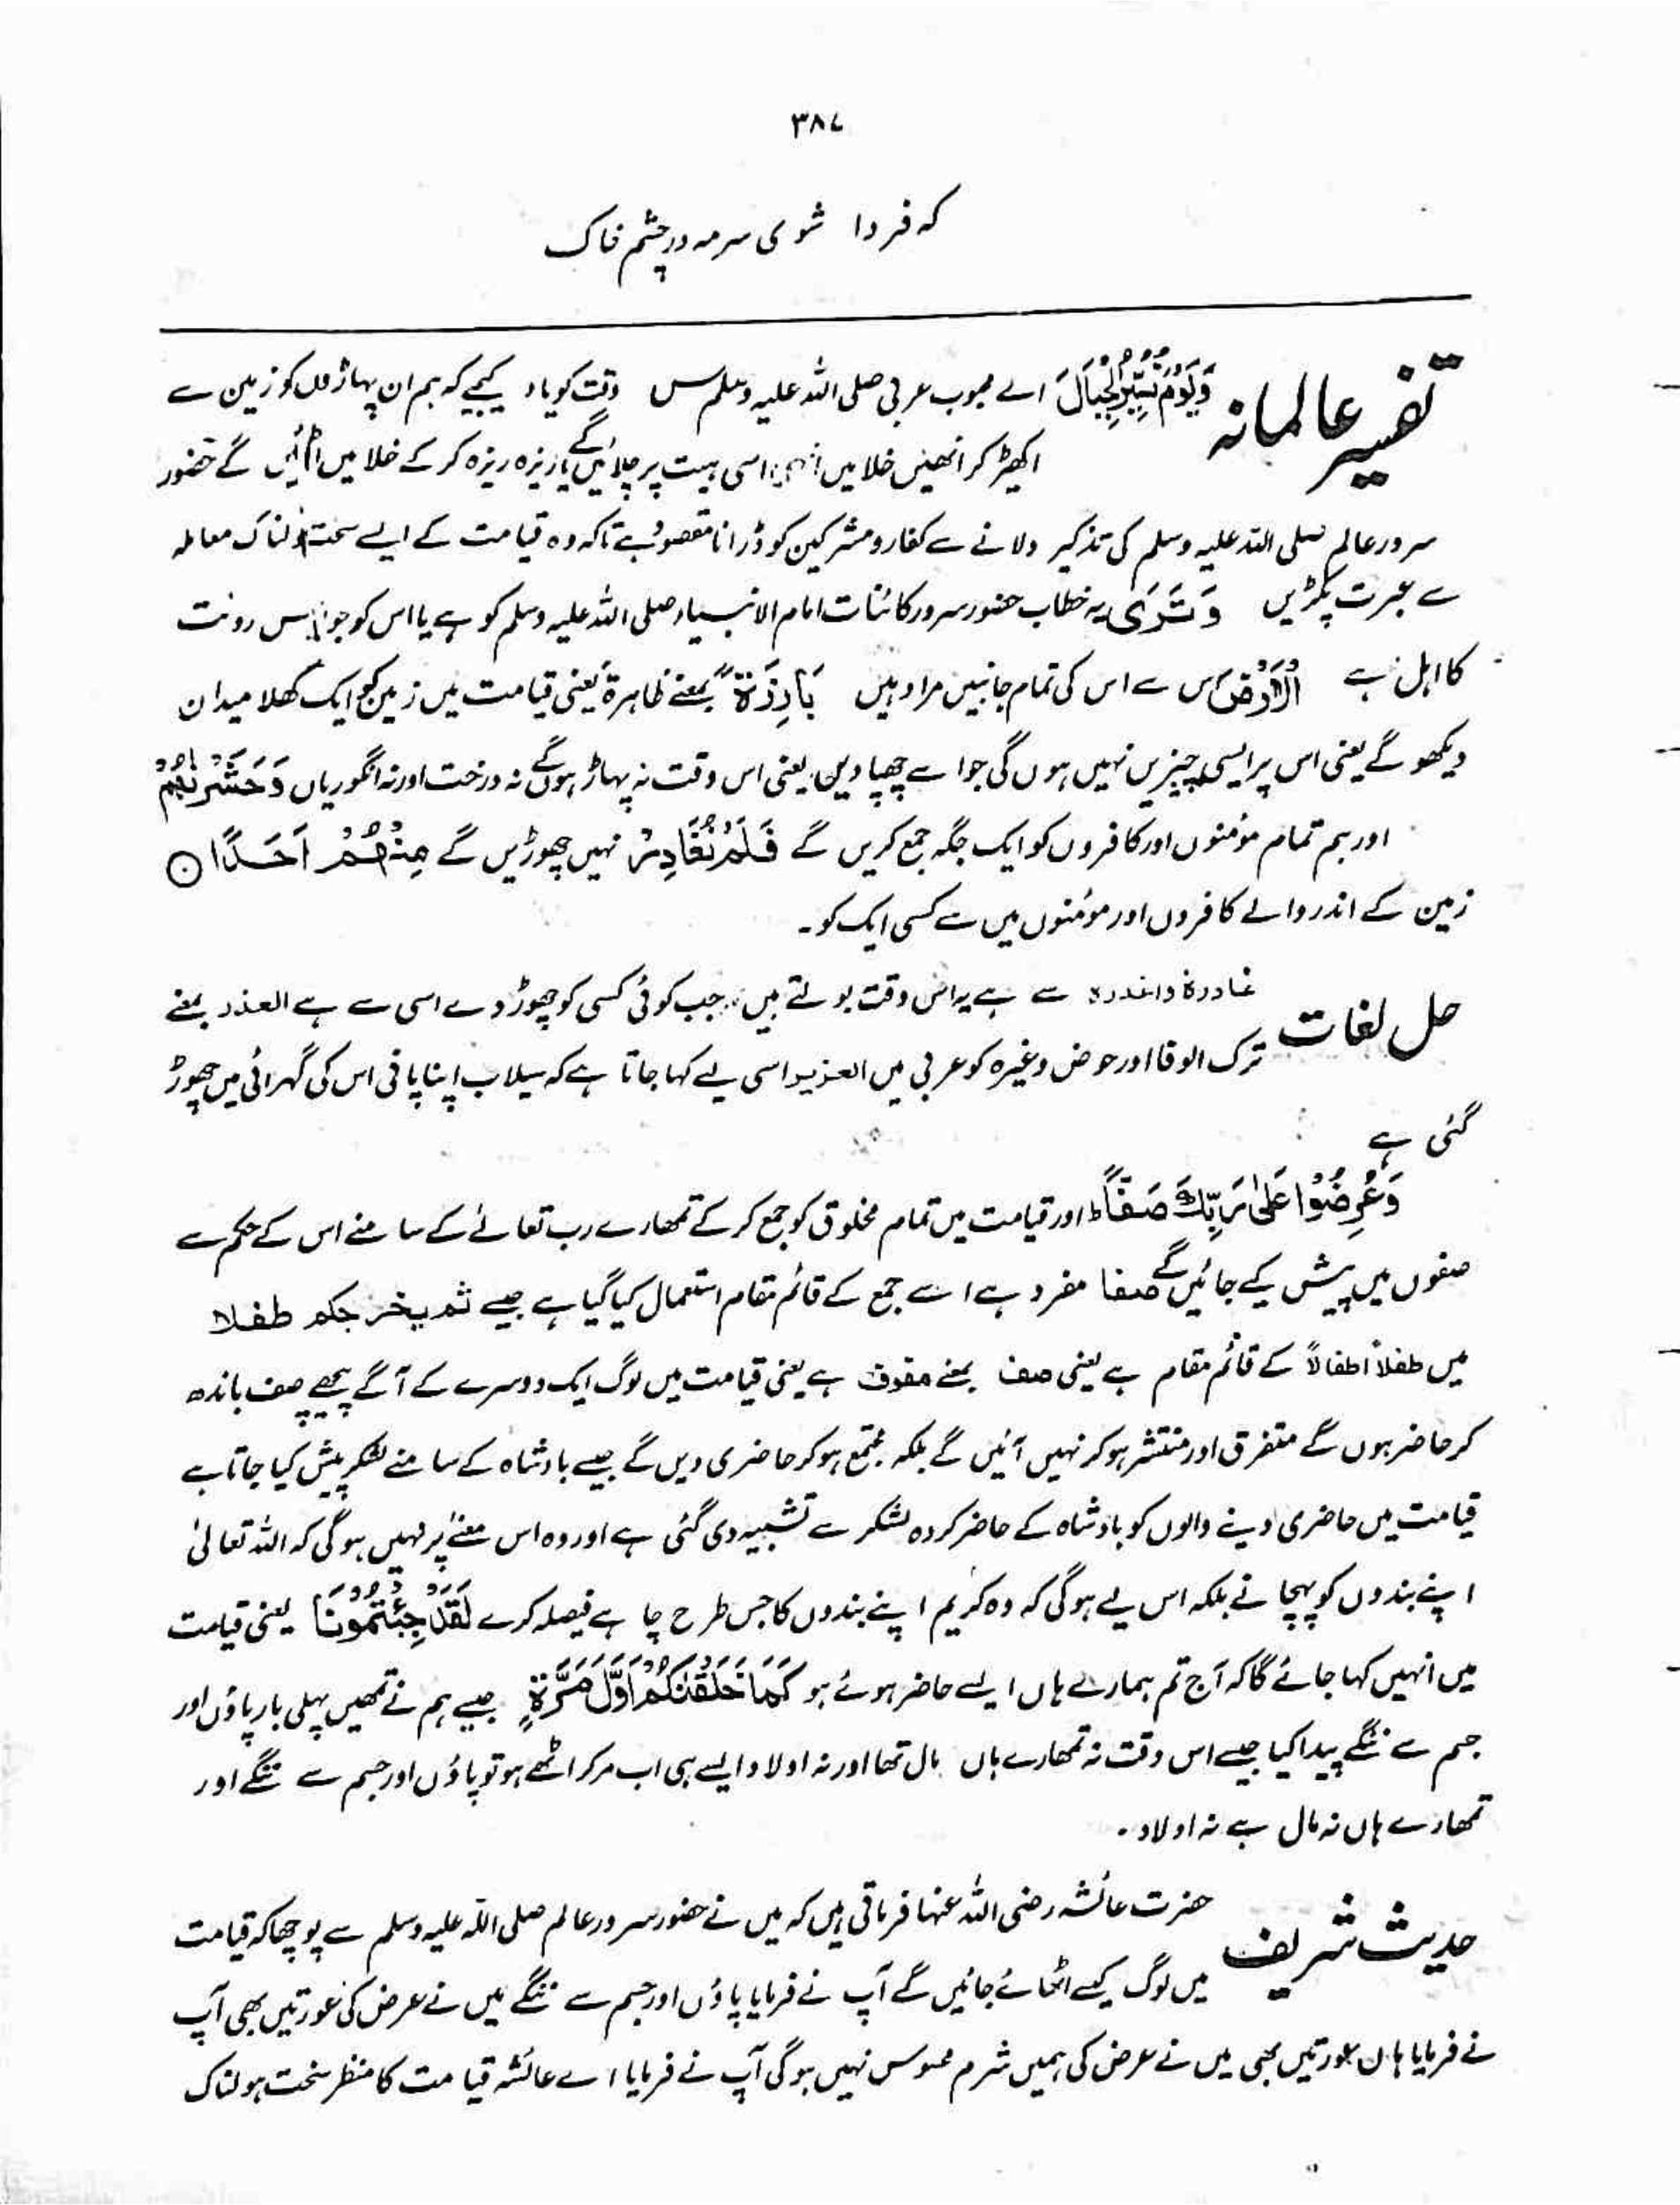 ۳۸۷
کہ فردا شوی سرمہ در چشم خاک
تفسیر عالمانہ
وَیَوْمَ نُسَیِّرُ الْجِبَالَ اے محبوب عربی صلی اللہ علیہ وسلم س وقت کو یاد کیجیے کہ ہم ان پہاڑوں کو زمین سے
اکھیڑ کر انھیں خلا میں اسی ہیت پر چلائیں گے یا ریزہ ریزہ کر کے خلا میں اڑائیں گے حضور
سرور عالم صلی اللہ علیہ وسلم کی تذکیر دلانے سے کفار و مشرکین کو ڈرانا مقصود ہے تاکہ وہ قیامت کے ایسے سخت ہولناک معاملہ
سے عبرت پکڑیں وَ تَرَی یہ خطاب حضور سرور کائنات امام الانبیاء صلی اللہ علیہ وسلم کو ہے یا اس کو جو اس رونت
کا اہل ہے الْاَرْضَ اس سے اس کی تمام جانبیں مراد ہیں بَارِزَۃً بمعنے ظاہرۃ یعنی قیامت میں زمین کو ایک کھلا میدان
دیکھو گے یعنی اس پر ایسی چیزیں نہیں ہوں گی جو اسے چھپا دیں یعنی اس وقت نہ پہاڑ ہوں گے نہ درخت اور نہ انگوریاں وَحَشَرْنٰھُمْ
اور ہم تمام مؤمنوں اور کافروں کو ایک جگہ جمع کریں گے فَلَمْ نُغَادِرْ نہیں چھوڑیں گے مِنْھُمْ اَحَدًا ○
زمین کے اندر والے کافروں اور مومنوں میں سے کسی ایک کو۔
حل لغات
غادرۃ واغدرہ سے ہے یہ اس وقت بولتے ہیں جب کوئی کسی کو چھوڑ دے اسی سے ہے العذر بمعنے
ترک الوفا اور حوض وغیرہ کو عربی میں العذیر اسی لیے کہا جاتا ہے کہ سیلاب اپنا پانی اس کی گہرائی میں چھوڑ
گئی ہے
وَعُرِضُوْا عَلٰی رَبِّكَ صَفًّا ط اور قیامت میں تمام مخلوق کو جمع کر کے تمھارے رب تعالےٰ کے سامنے اس کے حکم سے
صفوں میں پیش کیے جائیں گے صفا مفرد ہے اسے جمع کے قائم مقام استعمال کیا گیا ہے جیسے ثم یخرجکم طفلا
میں طفلاً اطفالاً کے قائم مقام ہے یعنی صف بمعنے صفوف ہے یعنی قیامت میں لوگ ایک دوسرے کے آگے پیچھے صف باندھ
کر حاضر ہوں گے متفرق اور منتشر ہو کر نہیں آئیں گے بلکہ مجتمع ہو کر حاضری دیں گے جیسے بادشاہ کے سامنے لشکر پیش کیا جاتا ہے
قیامت میں حاضری دینے والوں کو بادشاہ کے حاضر کردہ لشکر سے تشبیہ دی گئی ہے اور وہ اس معنے پر نہیں ہوگی کہ اللہ تعالیٰ
اپنے بندوں کو پہچانے بلکہ اس لیے ہوگی کہ وہ کریم اپنے بندوں کا جس طرح چاہے فیصلہ کرے لَقَدْ جِئْتُمُوْنَا یعنی قیامت
میں انہیں کہا جائے گا کہ آج تم ہمارے ہاں ایسے حاضر ہوئے ہو کَمَا خَلَقْنٰکُمْ اَوَّلَ مَرَّۃٍ جیسے ہم نے تمھیں پہلی بار پاؤں اور
جسم سے ننگے پیدا کیا جیسے اس وقت نہ تمھارے ہاں مال تھا اور نہ اولاد ایسے ہی اب مر کر اٹھے ہو تو پاؤں اور جسم سے ننگے اور
تمھارے ہاں نہ مال ہے نہ اولاد۔
حدیث شریف
حضرت عائشہ رضی اللہ عنہا فرماتی ہیں کہ میں نے حضور سرور عالم صلی اللہ علیہ وسلم سے پوچھا کہ قیامت
میں لوگ کیسے اٹھائے جائیں گے آپ نے فرمایا پاؤں اور جسم سے ننگے میں نے عرض کی عورتیں بھی آپ
نے فرمایا ہاں عورتیں بھی میں نے عرض کی ہمیں شرم محسوس نہیں ہوگی آپ نے فرمایا اے عائشہ قیامت کا منظر سخت ہولناک